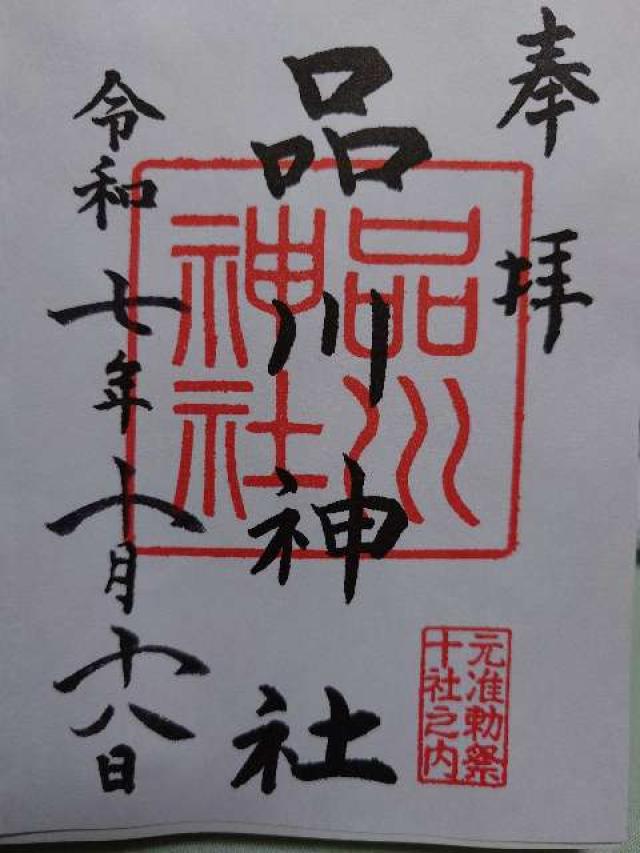 奉拝
品川神社
品川神社
元准勅祭
十社之内
令和七年十月十八日